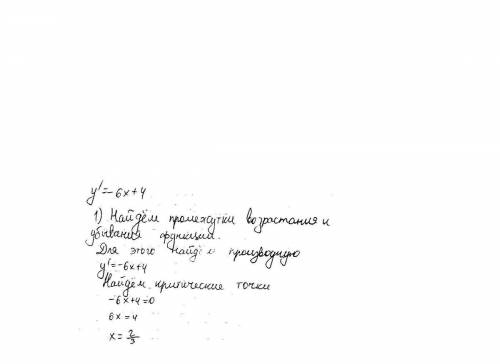 y' = -6x+4
1) Найдём промежутки возрастания и
убывания функции.
Для этого найдём производную
y' = -6x+4
Найдём критические точки
-6x+4=0
6x=4
x = 2/3